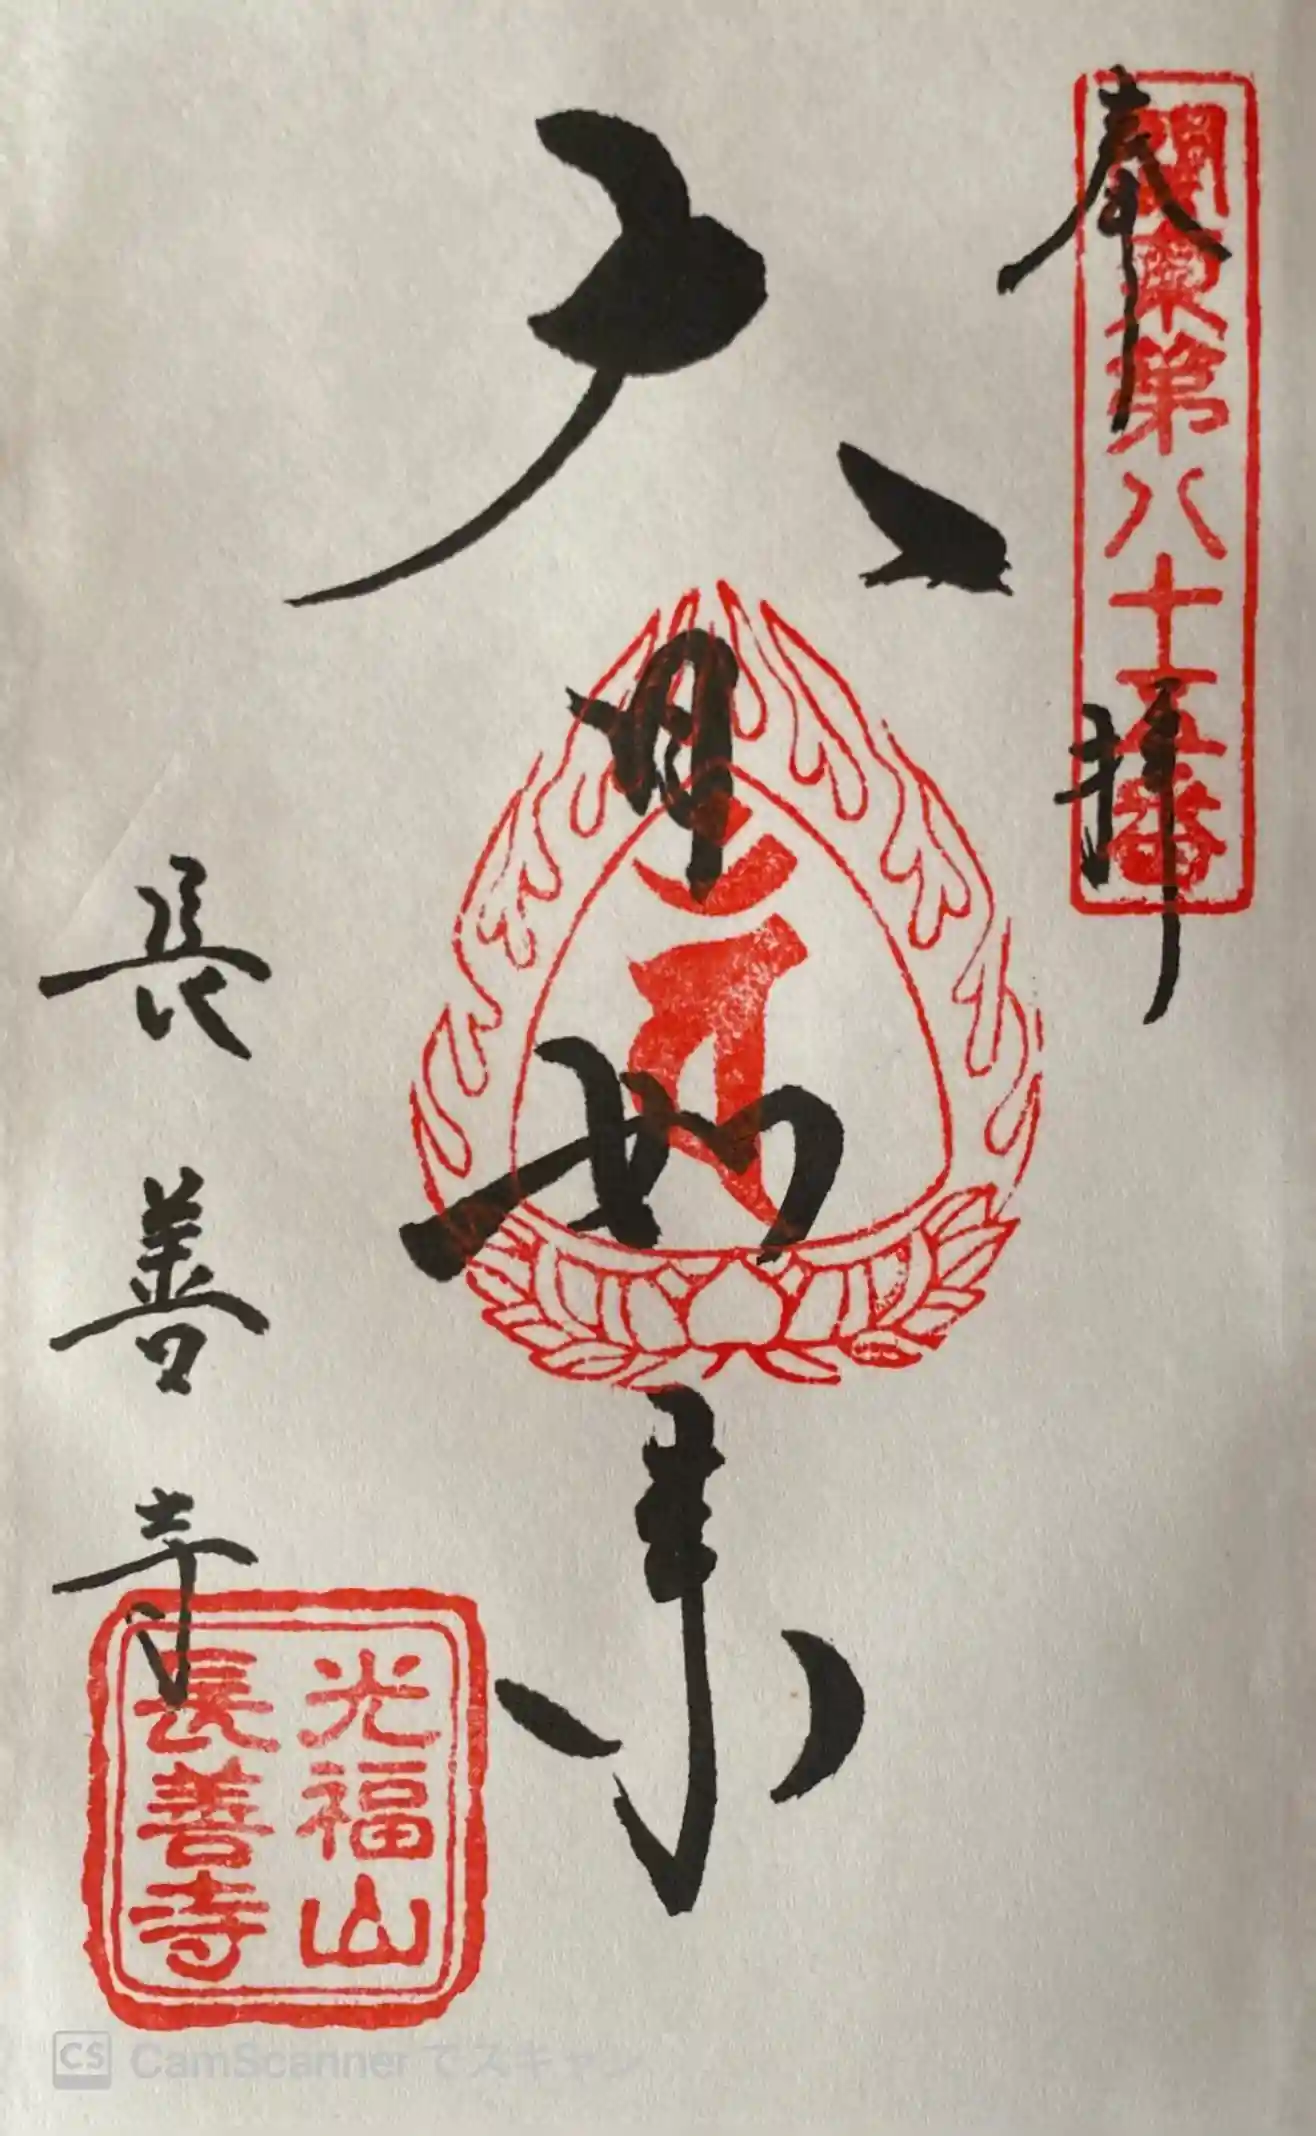 奉拝
関東第八十五番
大日如来
長善寺
光福山
長善寺
CS CamScanner でスキャン